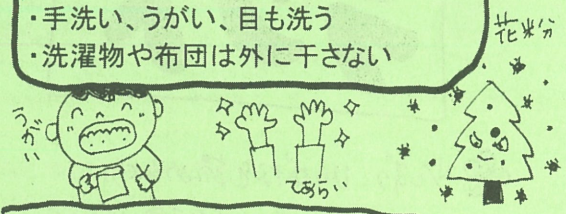 ・手洗い、うがい、目も洗う
・洗濯物や布団は外に干さない
花粉
うがい
てあらい